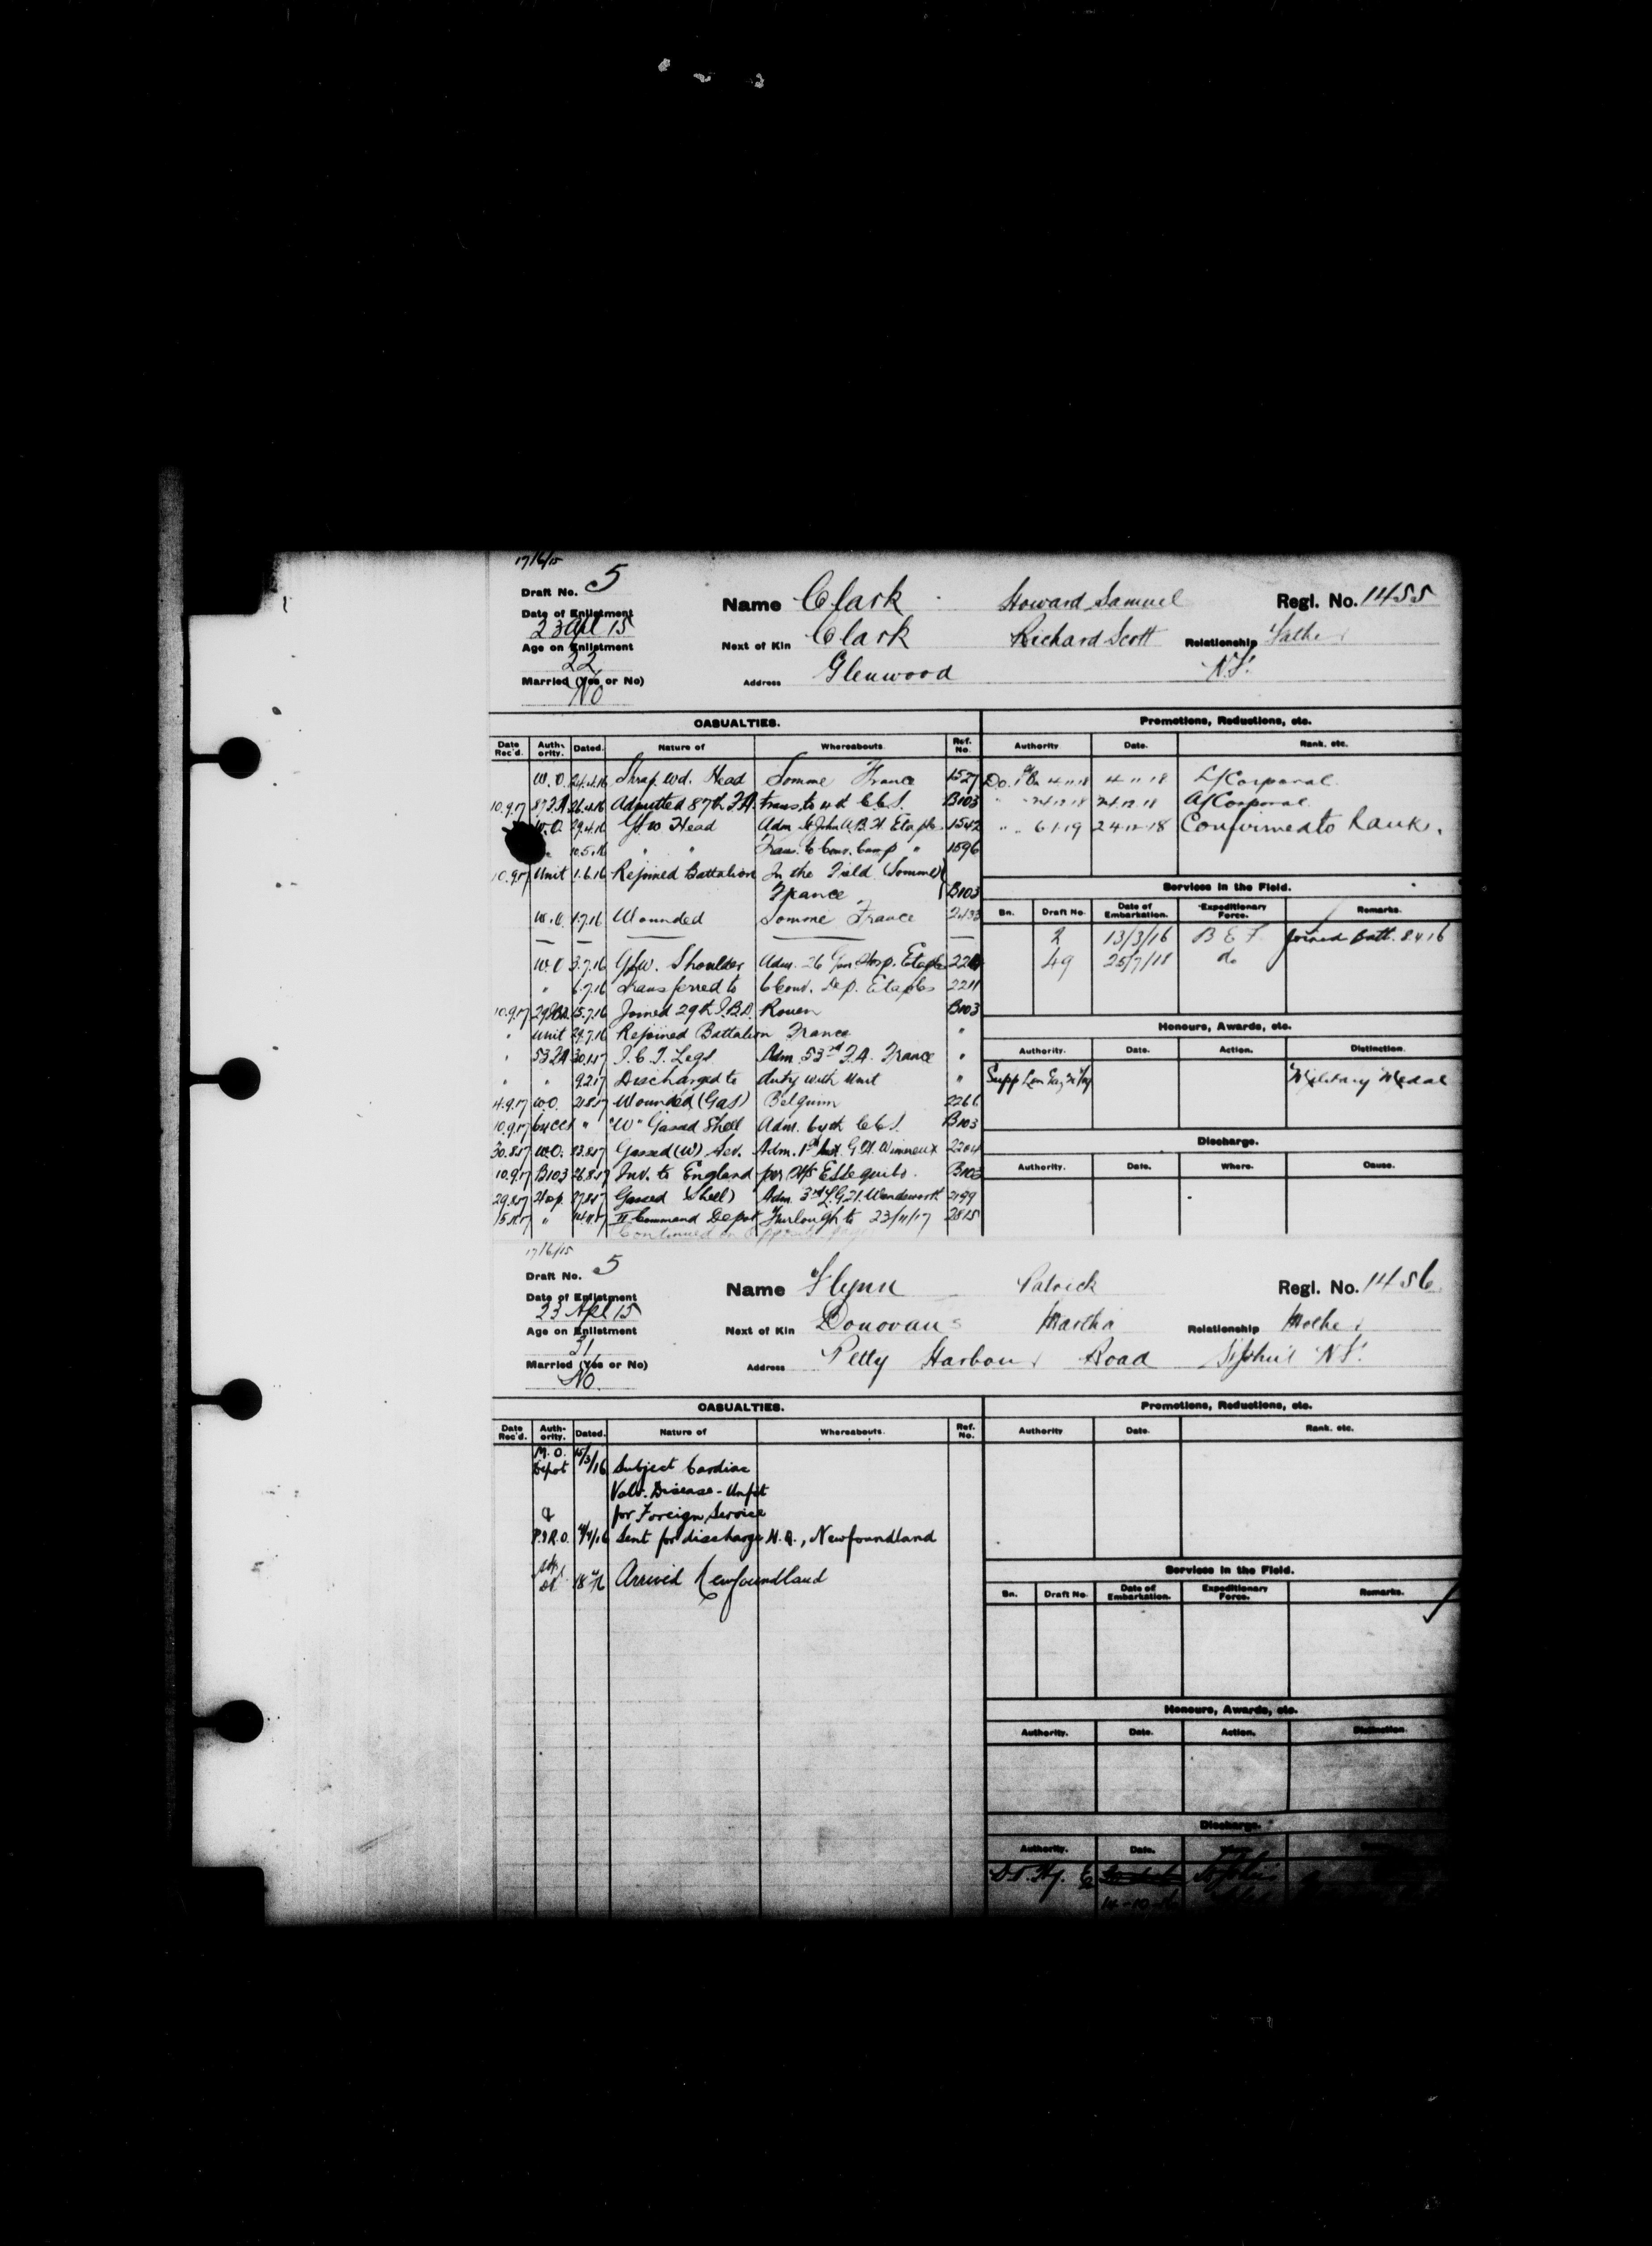 17/6/15
Draft No. 5
Name Clark Howard Samuel Regl. No. 1455
Date of Enlistment
23 Apl 15
Next of Kin Clark Richard Scott Relationship Father
Age on Enlistment
22
Address Glenwood N.F.
Married (Yes or No)
No
CASUALTIES. Promotions, Reductions, etc.
Date Rec'd. Auth-ority. Dated. Nature of Whereabouts. Ref. No. Authority Date. Rank. etc.
W.O. 24.4.16 Shrap. wd. Head Somme France 1527 4 11 18 L/Corporal
10.9.17 87 FA 26.4.16 Admitted 87th F.A. trans. to 4th C.C.S. B103 24.12.18 24.12.18 A/Corporal
W.O. 29.4.16 G.S.W Head Adm. St John A.B.H. Etaples 1542 " " 6.1.19 24-12-18 Confirmed to Rank.
10.5.16 " " Trans. to Conv. Camp " 1596
10.9.17 Unit 1.6.16 Rejoined Battalion In the Field (Somme)
France B103
Services in the Field.
W.O. 1.7.16 Wounded Somme France
Bn. Draft No. Date of Embarkation. Expeditionary Force. Remarks.
2 13/3/16 B E F. Joined Batt. 8.4.16
W.O 3.7.16 GSW. Shoulder Adm. 26 Gen. Hosp. Etaples 49 25/7/18 do
" 6.7.16 Transferred to 6 Conv. Dep. Etaples 2211
10.9.17 15.7.16 Joined 29th I.B.D. Rouen B103
" Unit 29.7.16 Rejoined Battalion France "
Honours, Awards, etc.
" 53 FA 30.1.17 I.C.T. Legs Adm. 53rd F.A. France "
Authority. Date. Action. Distinction.
" " 9.2.17 Discharged to duty with Unit "
Supp Lon Gaz Military Medal
4.9.17 W.O. 21.8.17 Wounded (Gas) Belgium 2266
10.9.17 64CCS " "W" Gassed Shell Adm. 64th C.C.S. B103
Discharge.
30.8.17 W.O. 23.8.17 Gassed (W) Sev. Adm. 1st G.H. Wimereux 2204
Authority. Date. Where. Cause.
10.9.17 B103 26.8.17 Inv. to England per H/S Essequibo. B103
29.8.17 Hosp. 27.8.17 Gassed (Shell) Adm. 3rd L.G.H. Wandsworth 2199
15.11.17 " 14.11.17 II Command Depot Furlough to 23/11/17 2815
Continued on Opposite page
17/6/15
Draft No. 5
Name Flynn Patrick Regl. No. 1456
Date of Enlistment
23 Apl 15
Next of Kin Donovan Martha Relationship Mother
Age on Enlistment
31
Address Petty Harbour Road N.F.
Married (Yes or No)
No
CASUALTIES. Promotions, Reductions, etc.
Date Rec'd. Auth-ority. Dated. Nature of Whereabouts. Ref. No. Authority Date. Rank. etc.
M.O.
Depot 15/3/16 Subject Cardiac
Valv. Disease - Unfit
& for Foreign Service
P.&R.O. Sent for discharge H.Q., Newfoundland
Services in the Field.
Arrived Newfoundland
Bn. Draft No. Date of Embarkation. Expeditionary Force. Remarks.
Honours, Awards, etc.
Authority. Date. Action. Distinction.
Discharge.
Authority. Date.